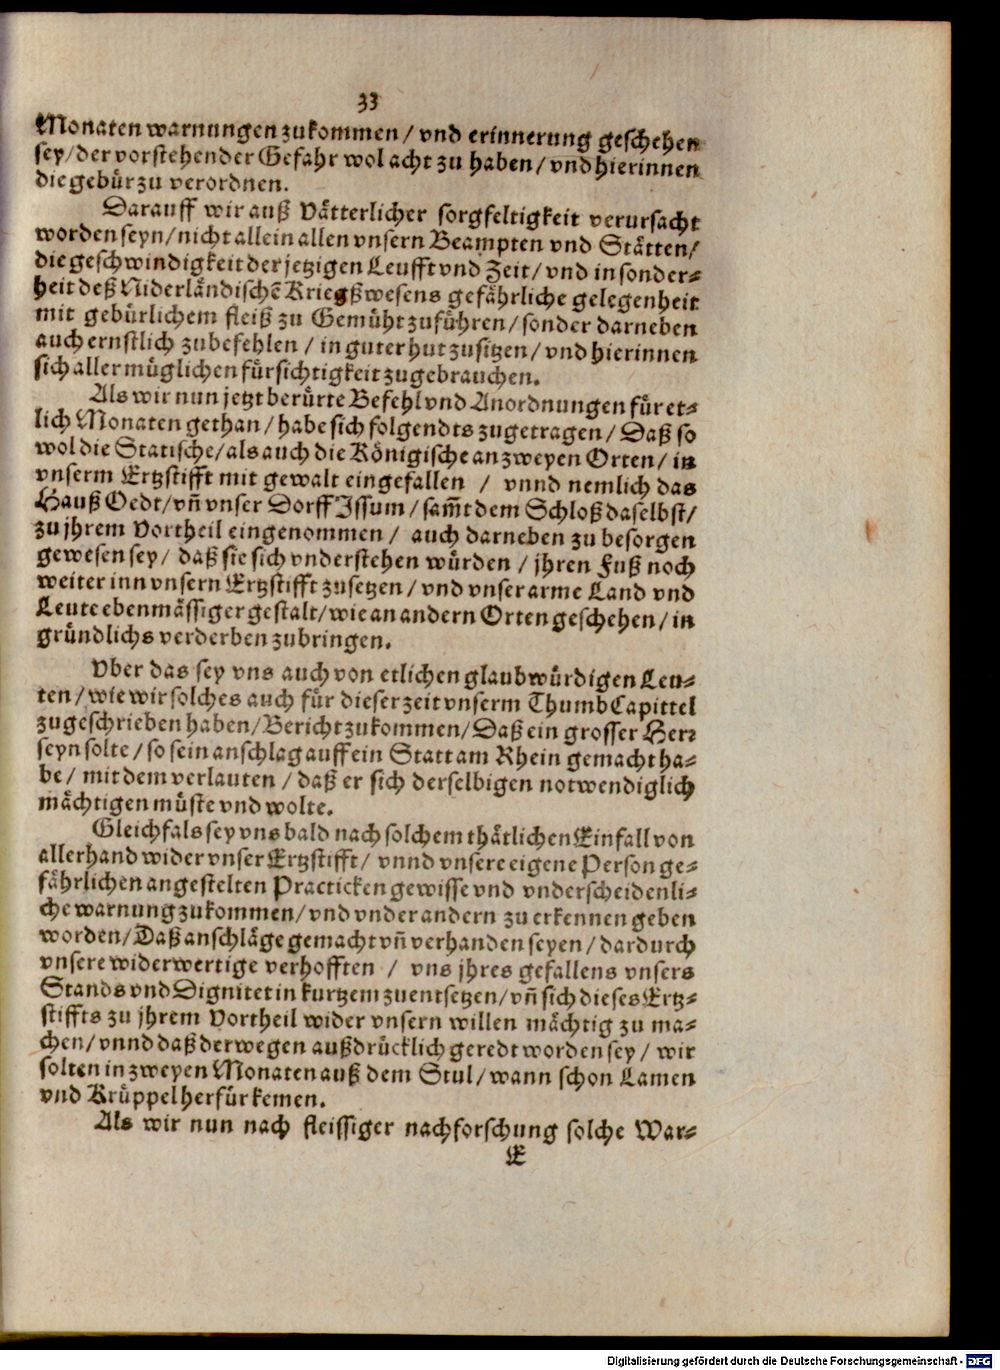 33
Monaten warnungen zukommen / vnd erinnerung geschehen
sey / der vorstehender Gefahr wol acht zu haben / vnd hierinnen
die gebür zu verordnen.
Darauff wir auß Vätterlicher sorgfeltigkeit verursacht
worden seyn / nicht allein allen vnsern Beampten vnd Stätten /
die geschwindigkeit der jetzigen Leufft vnd Zeit / vnd in sonder⸗
heit deß Niderländischē Kriegßwesens gefährliche gelegenheit
mit gebürlichem fleiß zu Gemüht zuführen / sonder darneben
auch ernstlich zubefehlen / in guter hut zusitzen / vnd hierinnen
sich aller müglichen fürsichtigkeit zugebrauchen.
Als wir nun jetzt berürte Befehl vnd Anordnungen für et⸗
lich Monaten gethan / habe sich folgendts zugetragen / Daß so
wol die Statische / als auch die Königische an zweyen Orten / in
vnserm Ertzstifft mit gewalt eingefallen / vnnd nemlich das
Hauß Oedt / vn̄ vnser Dorff Issum / sam̄t dem Schloß daselbst /
zu jhrem Vortheil eingenommen / auch darneben zu besorgen
gewesen sey / daß sie sich vnderstehen würden / jhren Fuß noch
weiter inn vnsern Ertzstifft zusetzen / vnd vnser arme Land vnd
Leute ebenmässiger gestalt / wie an andern Orten geschehen / in
gründlichs verderben zubringen.
Vber das sey vns auch von etlichen glaubwürdigen Leu⸗
ten / wie wir solches auch für dieser zeit vnserm ThumbCapittel
zugeschrieben haben / Bericht zukommen / Daß ein grosser Herr
seyn solte / so sein anschlag auff ein Statt am Rhein gemacht ha⸗
be / mit dem verlauten / daß er sich derselbigen notwendiglich
mächtigen müste vnd wolte.
Gleichfals sey vns bald nach solchem thätlichen Einfall von
allerhand wider vnser Ertzstifft / vnnd vnsere eigene Person ge⸗
fährlichen angestelten Practicken gewisse vnd vnderscheidenli⸗
che warnung zukommen / vnd vnder andern zu erkennen geben
worden / Daß anschläge gemacht vn̄ verhanden seyen / dardurch
vnsere widerwertige verhofften / vns jhres gefallens vnsers
Stands vnd Dignitet in kurtzem zuentsetzen / vn̄ sich dieses Ertz⸗
stiffts zu jhrem Vortheil wider vnsern willen mächtig zu ma⸗
chen / vnnd daß derwegen außdrücklich geredt worden sey / wir
solten in zweyen Monaten auß dem Stul / wann schon Lamen
vnd Krüppel herfür kemen.
Als wir nun nach fleissiger nachforschung solche War⸗
E
Digitalisierung gefördert durch die Deutsche Forschungsgemeinschaft - DFG